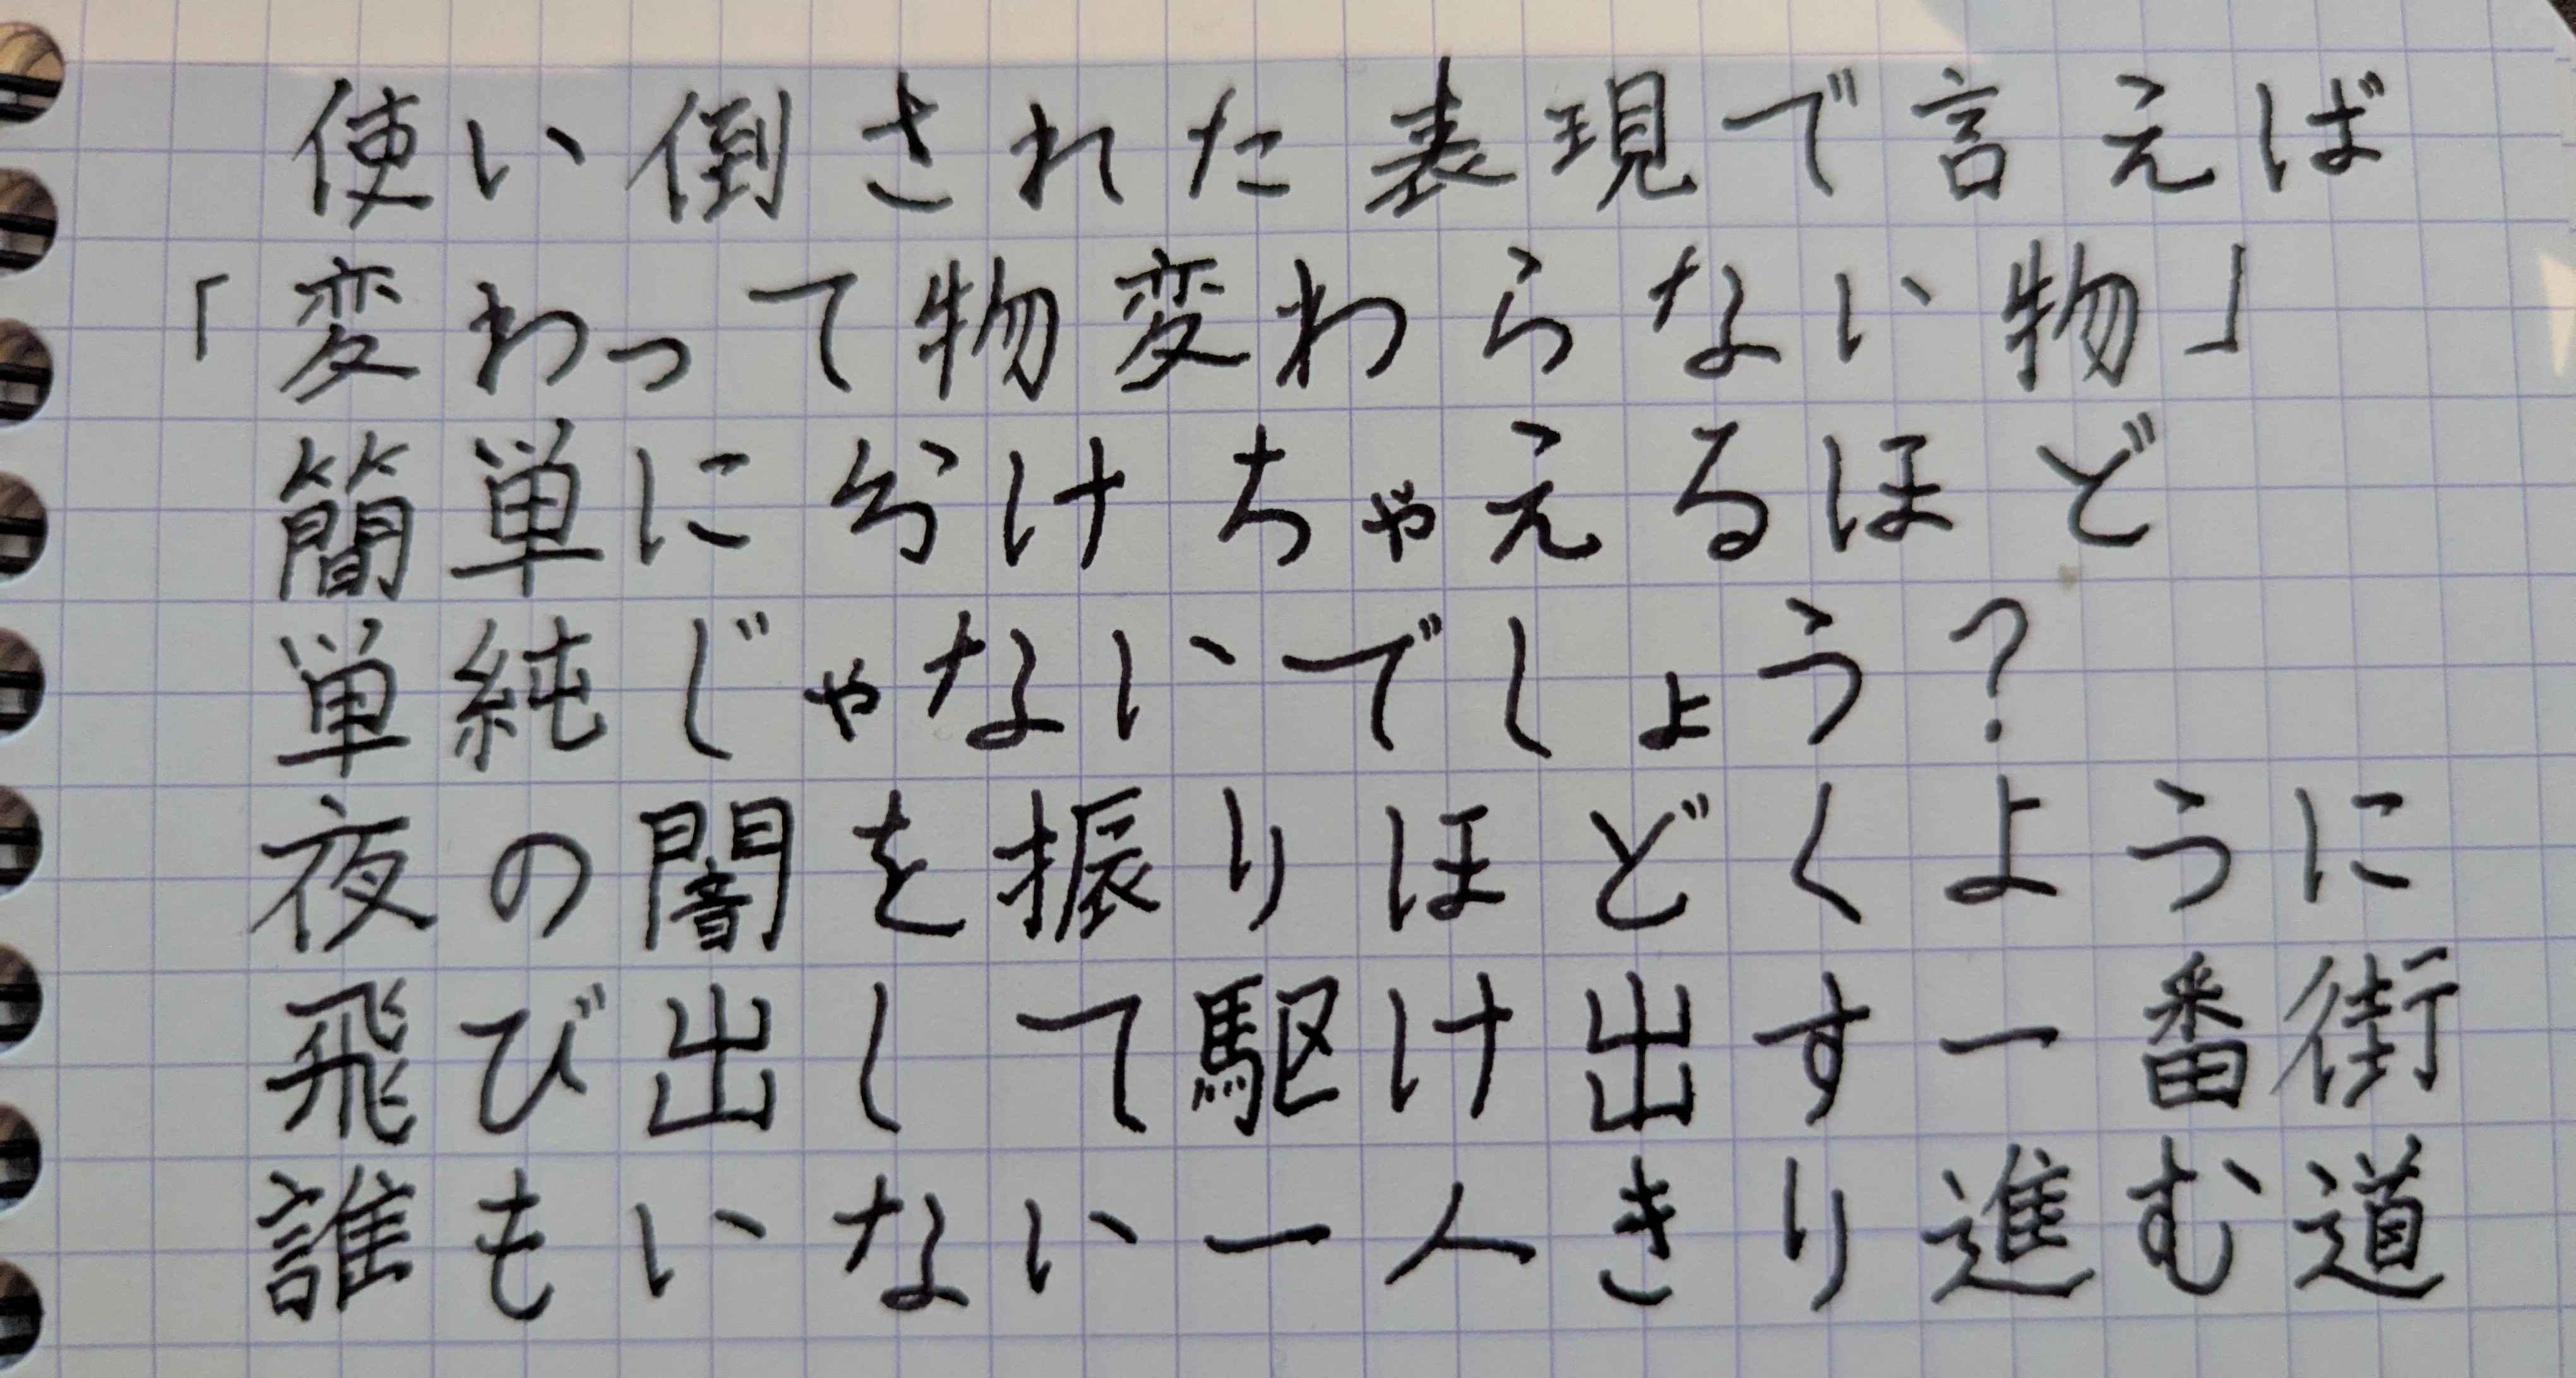 使い倒された表現で言えば
「変わって物変わらない物」
簡単に分けちゃえるほど
単純じゃないでしょう？
夜の闇を振りほどくように
飛び出して駆け出す一番街
誰もいない一人きり進む道